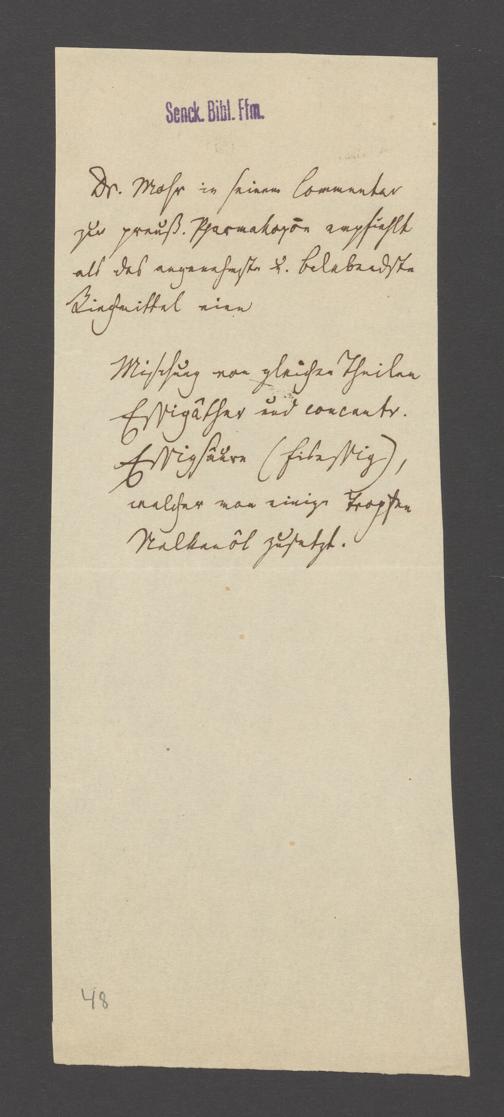 Senck. Bibl. Ffm.
Dr. Mohr in seinem Commentar
zur preuß. Pharmakopöe empfiehlt
als das angenehmste u. belebendste
Riechmittel eine
Mischung von gleichen Theilen
Essigäther und concentr.
Essigsäure (Eisessig),
welcher man einige Tropfen
Nelkenöl zusetzt.
48